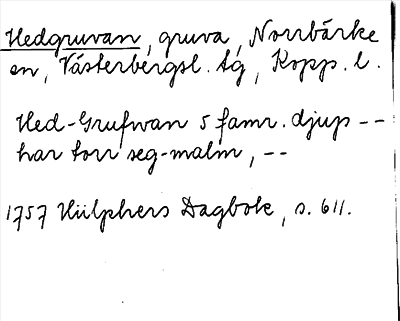 Hedgruvan, gruva, Norrbärke
en, Västerbergsl. tg, Kopp. l.
Hed-Grufwan 5 famr. djup --
har torr seg-malm, --
1757 Hülphers Dagbok, s. 611.